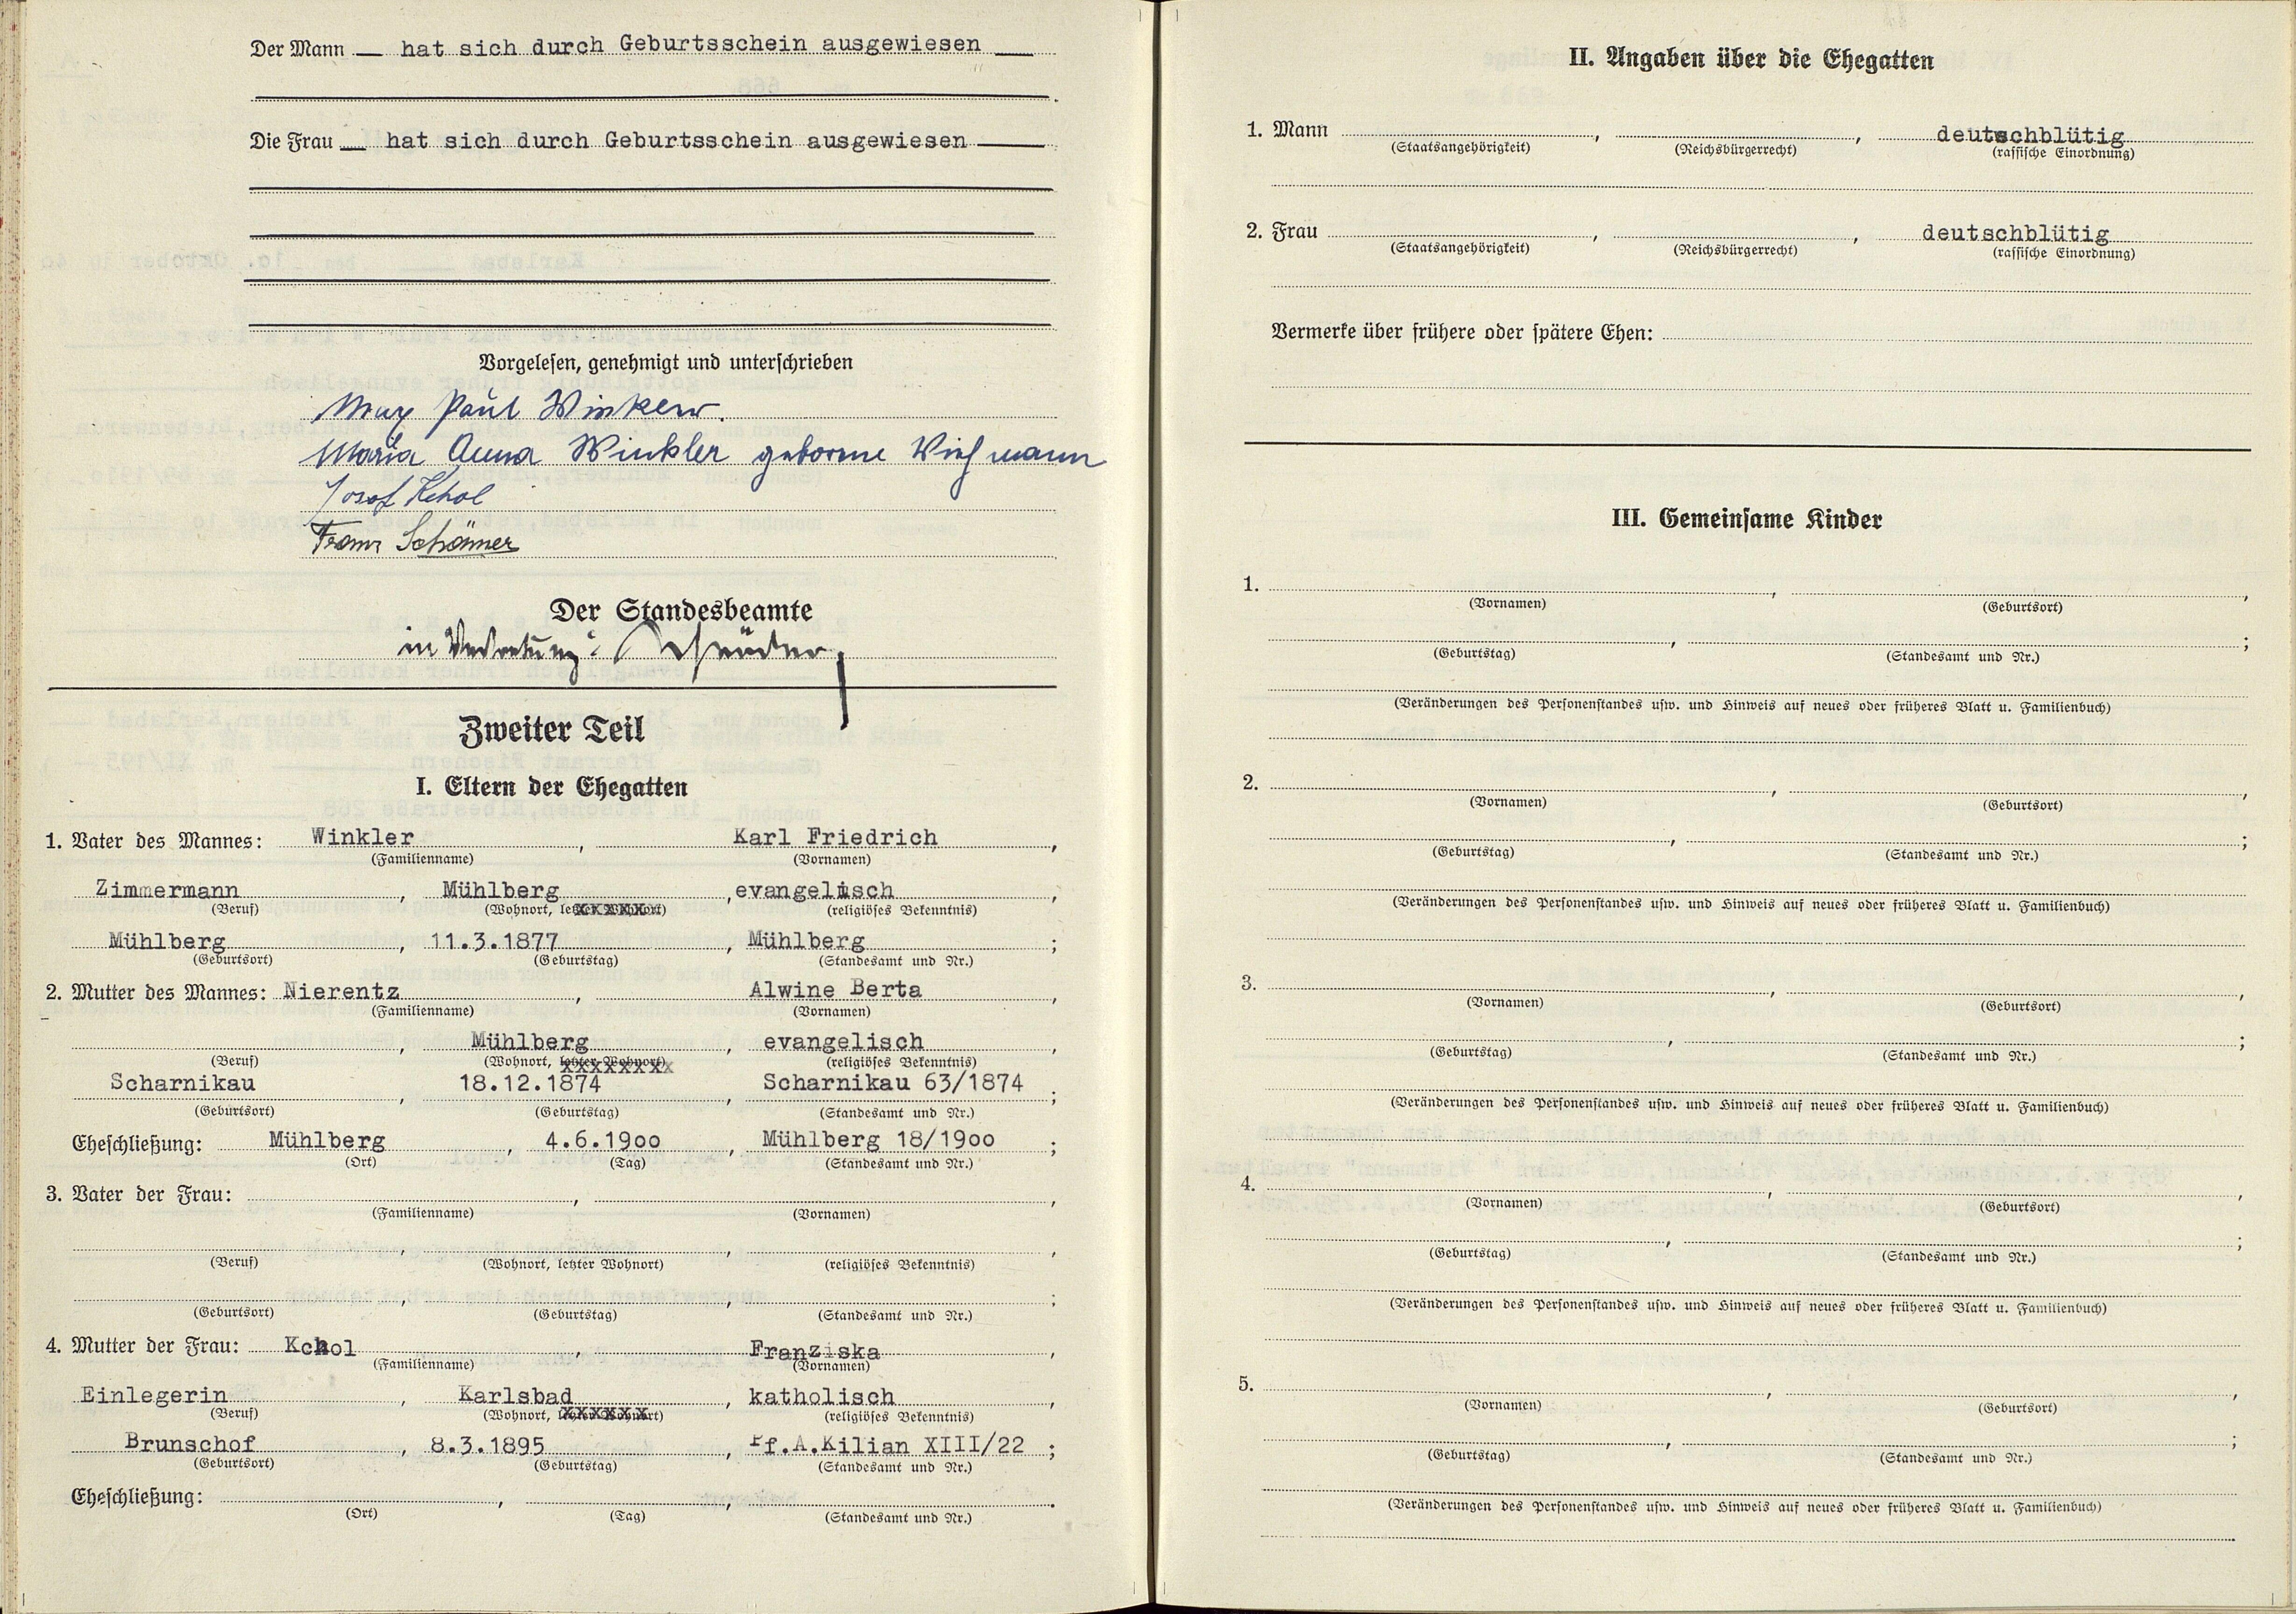 Der Mann — hat sich durch Geburtsschein ausgewiesen —
Die Frau — hat sich durch Geburtsschein ausgewiesen —
Vorgelesen, genehmigt und unterschrieben
Max Paul Winkler
Maria Anna Winkler geborene Wiesmann
Josef Kchol
Franz Schömer
Der Standesbeamte
in Vertretung:
Zweiter Teil
I. Eltern der Ehegatten
1. Vater des Mannes: Winkler, Karl Friedrich,
(Familienname) (Vornamen)
Zimmermann, Mühlberg, evangelisch,
(Beruf) (Wohnort, letzter Wohnort) (religiöses Bekenntnis)
Mühlberg, 11.3.1877, Mühlberg;
(Geburtsort) (Geburtstag) (Standesamt und Nr.)
2. Mutter des Mannes: Nierentz, Alwine Berta,
(Familienname) (Vornamen)
, Mühlberg, evangelisch,
(Beruf) (Wohnort, letzter Wohnort) (religiöses Bekenntnis)
Scharnikau, 18.12.1874, Scharnikau 63/1874;
(Geburtsort) (Geburtstag) (Standesamt und Nr.)
Eheschließung: Mühlberg, 4.6.19oo, Mühlberg 18/19oo;
(Ort) (Tag) (Standesamt und Nr.)
3. Vater der Frau: , ,
(Familienname) (Vornamen)
, , ,
(Beruf) (Wohnort, letzter Wohnort) (religiöses Bekenntnis)
, , ;
(Geburtsort) (Geburtstag) (Standesamt und Nr.)
4. Mutter der Frau: Kchol, Franziska,
(Familienname) (Vornamen)
Einlegerin, Karlsbad, katholisch,
(Beruf) (Wohnort, letzter Wohnort) (religiöses Bekenntnis)
Brunschof, 8.3.1895, Pf.A.Kilian XIII/22;
(Geburtsort) (Geburtstag) (Standesamt und Nr.)
Eheschließung: , , .
(Ort) (Tag) (Standesamt und Nr.)
II. Angaben über die Ehegatten
1. Mann , , deutschblütig
(Staatsangehörigkeit) (Reichsbürgerrecht) (rassische Einordnung)
2. Frau , , deutschblütig
(Staatsangehörigkeit) (Reichsbürgerrecht) (rassische Einordnung)
Vermerke über frühere oder spätere Ehen:
III. Gemeinsame Kinder
1. , ,
(Vornamen) (Geburtsort)
, ;
(Geburtstag) (Standesamt und Nr.)
(Veränderungen des Personenstandes usw. und Hinweis auf neues oder früheres Blatt u. Familienbuch)
2. , ,
(Vornamen) (Geburtsort)
, ;
(Geburtstag) (Standesamt und Nr.)
(Veränderungen des Personenstandes usw. und Hinweis auf neues oder früheres Blatt u. Familienbuch)
3. , ,
(Vornamen) (Geburtsort)
, ;
(Geburtstag) (Standesamt und Nr.)
(Veränderungen des Personenstandes usw. und Hinweis auf neues oder früheres Blatt u. Familienbuch)
4. , ,
(Vornamen) (Geburtsort)
, ;
(Geburtstag) (Standesamt und Nr.)
(Veränderungen des Personenstandes usw. und Hinweis auf neues oder früheres Blatt u. Familienbuch)
5. , ,
(Vornamen) (Geburtsort)
, ;
(Geburtstag) (Standesamt und Nr.)
(Veränderungen des Personenstandes usw. und Hinweis auf neues oder früheres Blatt u. Familienbuch)